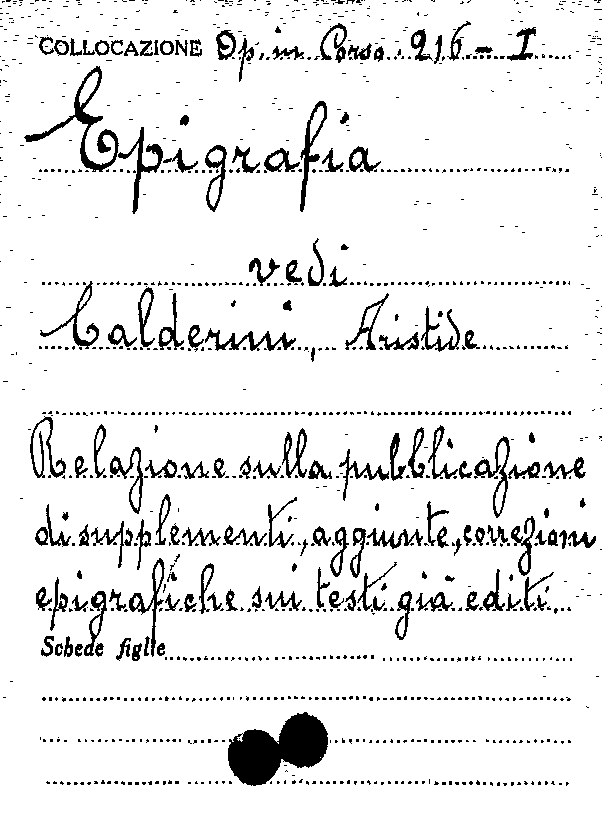 COLLOCAZIONE Op. in Corso. 216 - I
Epigrafia
vedi
Calderini, Aristide
Relazione sulla pubblicazione
di supplementi, aggiunte, correzioni
epigrafiche sui testi già editi.
Schede figlie